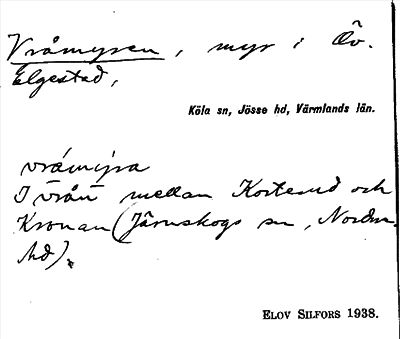 Vråmyren, myr i Öv.
Elgestad,
Köla sn, Jösse hd, Värmlands län.
vråmy̆ra
I vrån mellan Korterud och
Kronan (Järnskogs sn, Nordm.
hd).
ELOV SILFORS 1938.